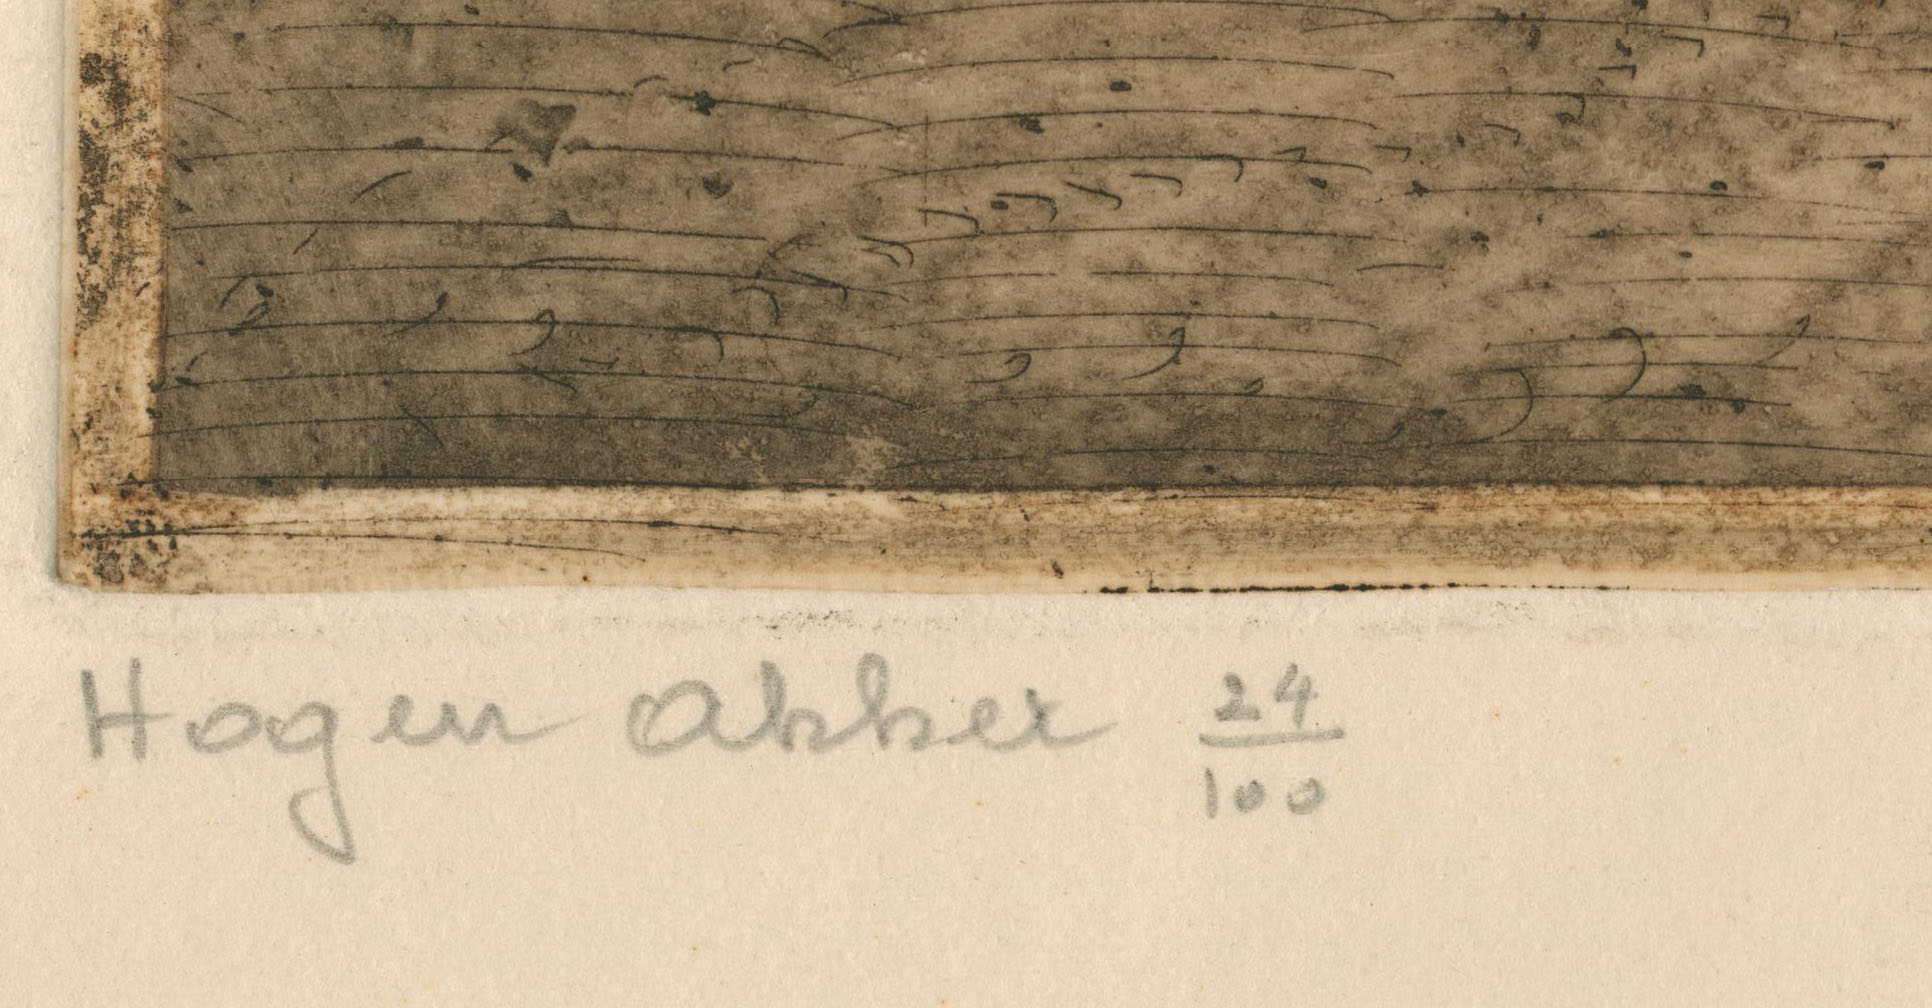 Hogen Akker 24/100